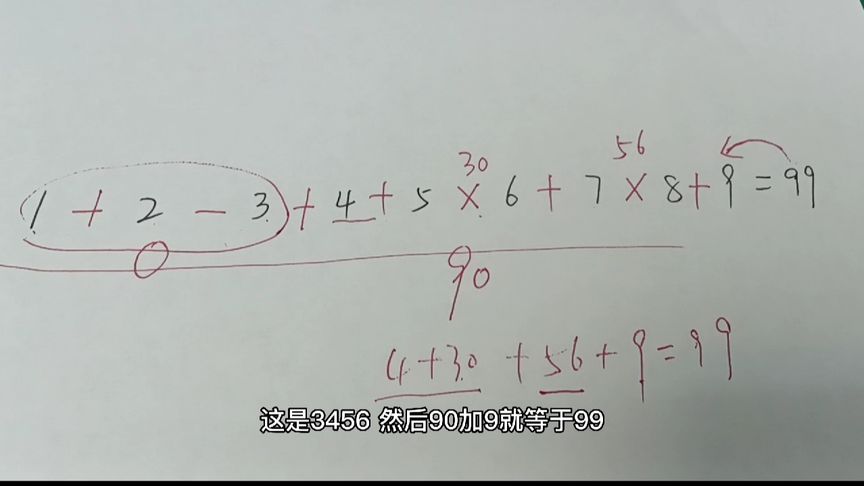 30 56
1 + 2 - 3 + 4 + 5 × 6 + 7 × 8 + 9 = 99
0 90
4 + 30 + 56 + 9 = 99
这是3456 然后90加9就等于99